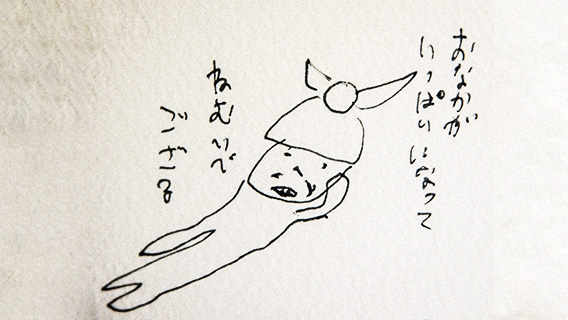 おなかが
いっぱいになって
ねむいで
ござる